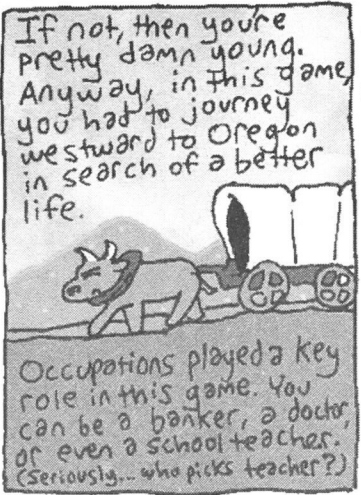 If not, then you're
pretty damn young.
Anyway, in this game,
you had to journey
westward to Oregon
in search of a better
life.
Occupations played a key
role in this game. You
can be a banker, a doctor,
or even a school teacher.
(Seriously... who picks teacher?)